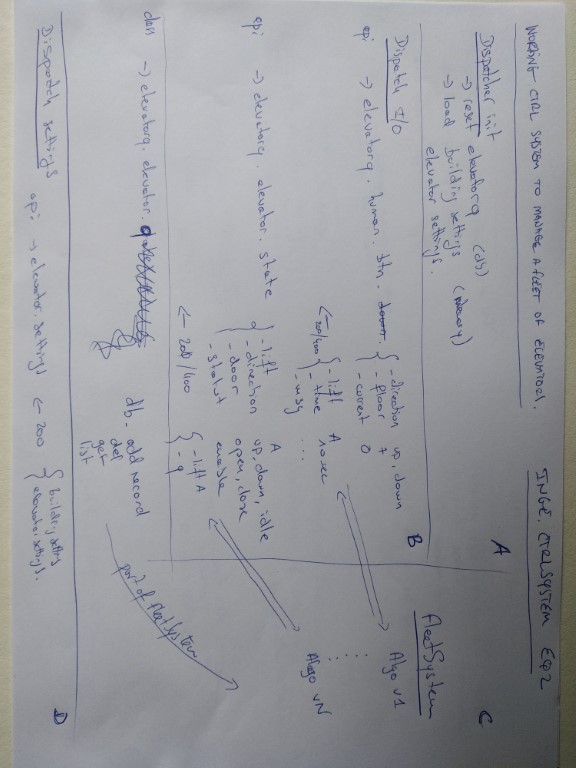 WORKING CTRL SYSTEM TO MANAGE A FLEET OF ELEVATORS.
INGE. CTRLSYSTEM EQ2
A
Dispatcher init
→ reset elevatorq (db)
→ load building settings (memory)
elevator settings.
B
Dispatch I/O
api → elevatorq. human. btn. down. { - direction up, down
- floor 7
- current 0
← 200/400 { - lift A
- time 10 sec
- msg ...
api → elevatorq. elevator. state { - lift A
- direction up, down, idle
- door open, close
- statut enable
← 200/400 { - lift A
- q
class → elevatorq. elevator. q
db. add record
del
get
list
part of FleetSystem
C
FleetSystem
Algo v1
Algo vN
D
Dispatch settings
api → elevator. settings ← 200 { building settings
elevator settings.